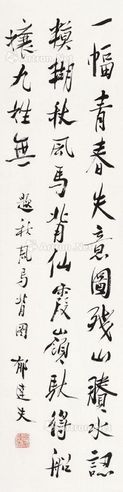 一幅青春失意圖殘山賸水認
模糊秋風馬背仙霞嶺馱得船
孃九姓無
題秋風馬背圖 郁達夫